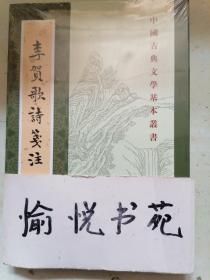 中國古典文學基本叢書
李賀歌詩箋注
愉悦书苑